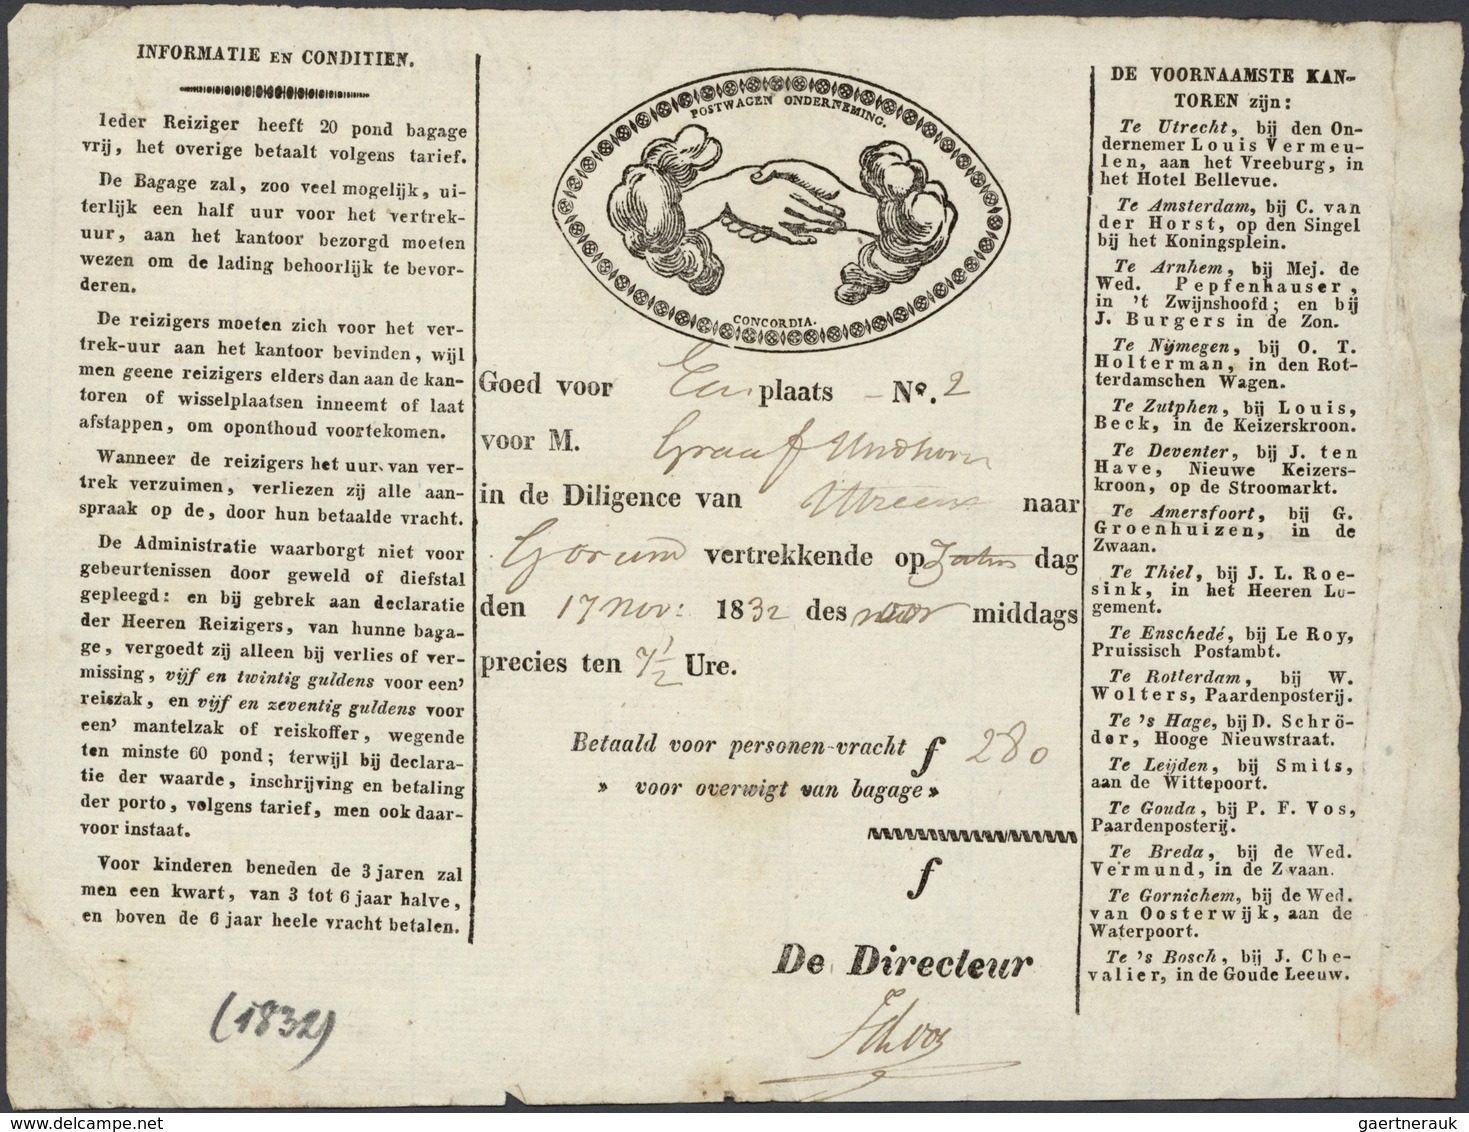 INFORMATIE EN CONDITIEN.
Ieder Reiziger heeft 20 pond bagage
vrij, het overige betaalt volgens tarief.
De Bagage zal, zoo veel mogelijk, ui-
terlijk een half uur voor het vertrek-
uur, aan het kantoor bezorgd moeten
wezen om de lading behoorlijk te bevor-
deren.
De reizigers moeten zich voor het ver-
trek-uur aan het kantoor bevinden, wijl
men geene reizigers elders dan aan de kan-
toren of wisselplaatsen inneemt of laat
afstappen, om oponthoud voortekomen.
Wanneer de reizigers het uur van ver-
trek verzuimen, verliezen zij alle aan-
spraak op de, door hun betaalde vracht.
De Administratie waarborgt niet voor
gebeurtenissen door geweld of diefstal
gepleegd: en bij gebrek aan declaratie
der Heeren Reizigers, van hunne baga-
ge, vergoedt zij alleen bij verlies of ver-
missing, vijf en twintig guldens voor een'
reiszak, en vijf en zeventig guldens voor
een' mantelzak of reiskoffer, wegende
ten minste 60 pond; terwijl bij declara-
tie der waarde, inschrijving en betaling
der porto, volgens tarief, men ook daar-
voor instaat.
Voor kinderen beneden de 3 jaren zal
men een kwart, van 3 tot 6 jaar halve,
en boven de 6 jaar heele vracht betalen.
(1832)
POSTWAGEN ONDERNEMING.
CONCORDIA.
Goed voor Een plaats - No. 2
voor M. Graaf
in de Diligence van naar
Gorcum vertrekkende op dag
den 17 nov: 1832 des voor middags
precies ten 7 1/2 Ure.
Betaald voor personen-vracht f 280
» voor overwigt van bagage »
f
De Directeur
DE VOORNAAMSTE KAN-
TOREN zijn:
Te Utrecht, bij den On-
dernemer Louis Vermeu-
len, aan het Vreeburg, in
het Hotel Bellevue.
Te Amsterdam, bij C. van
der Horst, op den Singel
bij het Koningsplein.
Te Arnhem, bij Mej. de
Wed. Pepfenhauser,
in 't Zwijnshoofd; en bij
J. Burgers in de Zon.
Te Nijmegen, bij O. T.
Holterman, in den Rot-
terdamschen Wagen.
Te Zutphen, bij Louis,
Beck, in de Keizerskroon.
Te Deventer, bij J. ten
Have, Nieuwe Keizers-
kroon, op de Stroomarkt.
Te Amersfoort, bij G.
Groenhuizen, in de
Zwaan.
Te Thiel, bij J. L. Roe-
sink, in het Heeren Lo-
gement.
Te Enschedé, bij Le Roy,
Pruissisch Postambt.
Te Rotterdam, bij W.
Wolters, Paardenposterij.
Te 's Hage, bij D. Schrö-
der, Hooge Nieuwstraat.
Te Leijden, bij Smits,
aan de Wittepoort.
Te Gouda, bij P. F. Vos,
Paardenposterij.
Te Breda, bij de Wed.
Vermund, in de Zvaan.
Te Gornichem, bij de Wed.
van Oosterwijk, aan de
Waterpoort.
Te 's Bosch, bij J. Che-
valier, in de Goude Leeuw.
gaertnerauk